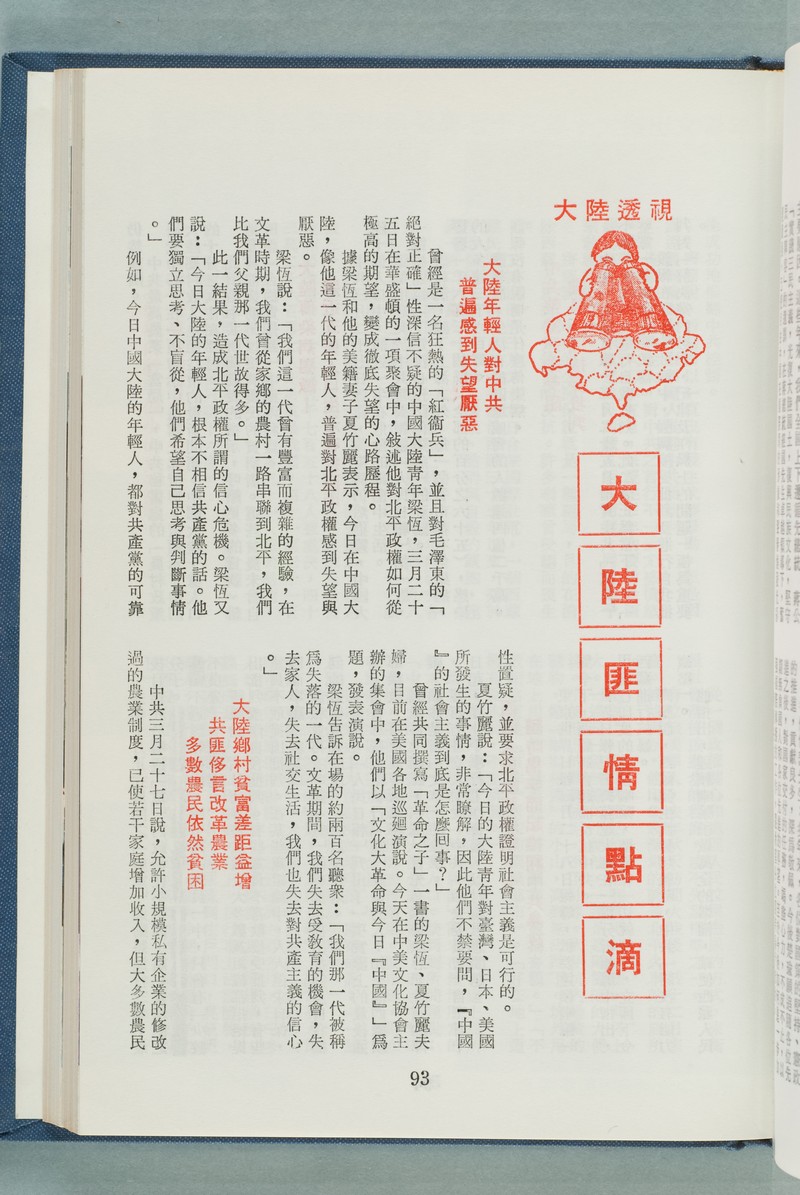 大陸透視
大陸匪情點滴
大陸年輕人對中共
普遍感到失望厭惡
曾經是一名狂熱的「紅衞兵」，並且對毛澤東的「
絕對正確」性深信不疑的中國大陸青年梁恆，三月二十
五日在華盛頓的一項聚會中，敍述他對北平政權如何從
極高的期望，變成徹底失望的心路歷程。
據梁恆和他的美籍妻子夏竹麗表示，今日在中國大
陸，像他這一代的年輕人，普遍對北平政權感到失望與
厭惡。
梁恆說：「我們這一代曾有豐富而複雜的經驗，在
文革時期，我們曾從家鄉的農村一路串聯到北平，我們
比我們父親那一代世故得多。」
此一結果，造成北平政權所謂的信心危機。梁恆又
說：「今日大陸的年輕人，根本不相信共產黨的話。他
們要獨立思考、不盲從，他們希望自己思考與判斷事情
。」
例如，今日中國大陸的年輕人，都對共產黨的可靠
性置疑，並要求北平政權證明社會主義是可行的。
夏竹麗說：「今日的大陸青年對臺灣、日本、美國
所發生的事情，非常瞭解，因此他們不禁要問，『中國
』的社會主義到底是怎麼回事？」
曾經共同撰寫「革命之子」一書的梁恆、夏竹麗夫
婦，日前在美國各地巡廻演說。今天在中美文化協會主
辦的集會中，他們以「文化大革命與今日『中國』」爲
題，發表演說。
梁恆告訴在場的約兩百名聽衆：「我們那一代被稱
爲失落的一代。文革期間，我們失去受敎育的機會，失
去家人，失去社交生活，我們也失去對共產主義的信心
。」
大陸鄉村貧富差距益增
共匪侈言改革農業
多數農民依然貧困
中共三月二十七日說，允許小規模私有企業的修改
過的農業制度，已使若干家庭增加收入，但大多數農民
93